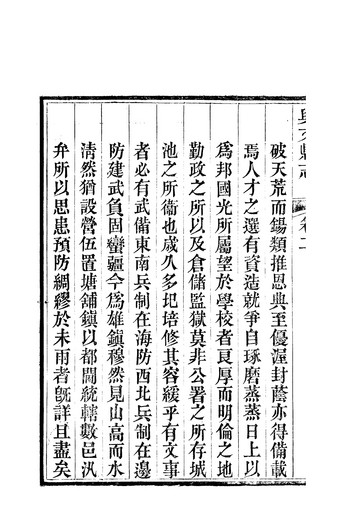 興文縣志
卷二
破天荒而錫類推恩典至優渥封蔭亦得備載
焉人才之選有資造就爭自琢磨蒸蒸日上以
爲邦國光所屬望於學校者良厚而明倫之地
勤政之所以及倉儲監獄莫非公署之所存城
池之所衞也歲久多圮培修其容緩乎有文事
者必有武備東南兵制在海防西北兵制在邊
防建武負固蠻疆今爲雄鎭穆然見山高而水
淸然猶設營伍置塘舖鎭以都閫統轄數邑汎
弁所以思患預防綢繆於未雨者旣詳且盡矣